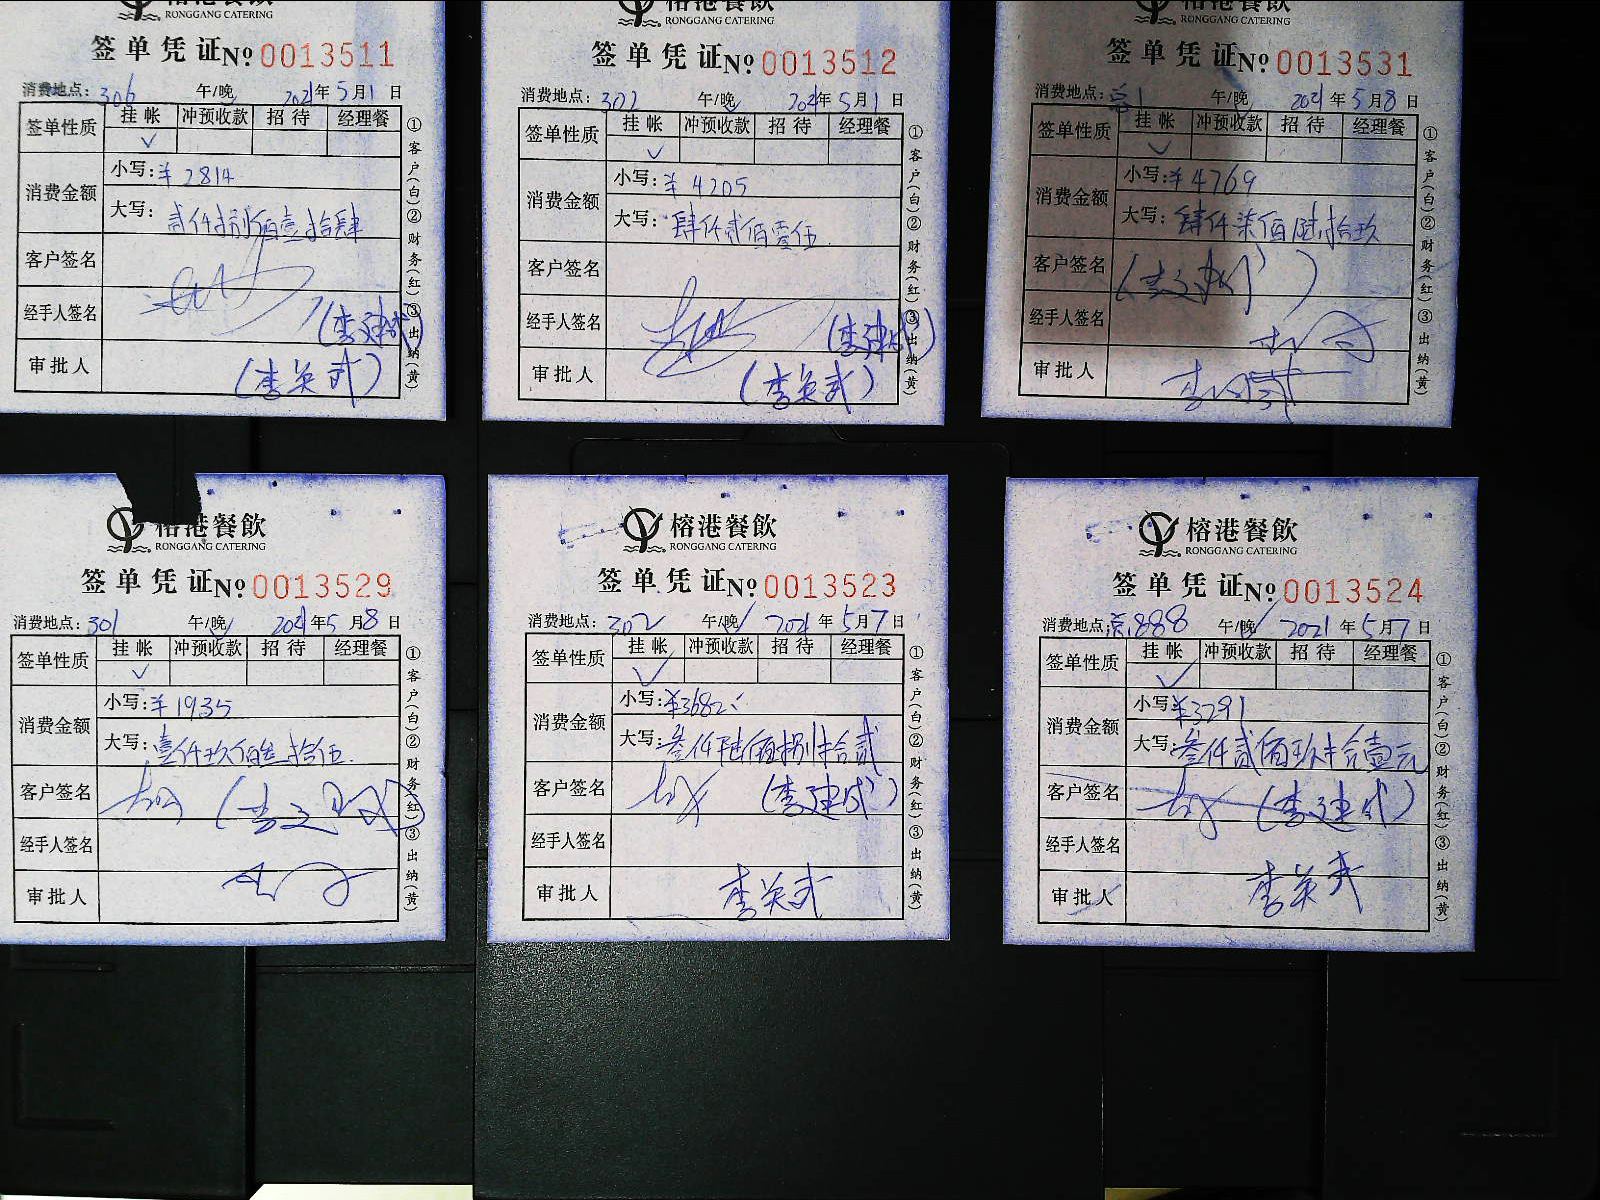 榕港餐飲
RONGGANG CATERING
签单凭证No 0013511
消费地点：306 午/晚 2021年5月1日
签单性质 挂帐 冲预收款 招待 经理餐
✓
消费金额 小写：¥2814
大写：贰仟捌佰壹拾肆
客户签名
经手人签名 (李建成)
审批人 (李英武)
①客户(白)②财务(红)③出纳(黄)
榕港餐飲
RONGGANG CATERING
签单凭证No 0013512
消费地点：302 午/晚 2021年5月1日
签单性质 挂帐 冲预收款 招待 经理餐
✓
消费金额 小写：¥4205
大写：肆仟贰佰零伍
客户签名
经手人签名 (李建成)
审批人 (李英武)
①客户(白)②财务(红)③出纳(黄)
榕港餐飲
RONGGANG CATERING
签单凭证No 0013531
消费地点： 午/晚 2021年5月8日
签单性质 挂帐 冲预收款 招待 经理餐
✓
消费金额 小写：¥4769
大写：肆仟柒佰陆拾玖
客户签名
经手人签名
审批人
①客户(白)②财务(红)③出纳(黄)
榕港餐飲
RONGGANG CATERING
签单凭证No 0013529
消费地点：301 午/晚 2021年5月8日
签单性质 挂帐 冲预收款 招待 经理餐
✓
消费金额 小写：¥1935
大写：壹仟玖佰叁拾伍
客户签名
经手人签名
审批人
①客户(白)②财务(红)③出纳(黄)
榕港餐飲
RONGGANG CATERING
签单凭证No 0013523
消费地点：302 午/晚 2021年5月7日
签单性质 挂帐 冲预收款 招待 经理餐
✓
消费金额 小写：¥3682
大写：叁仟陆佰捌拾贰
客户签名 (李建成)
经手人签名
审批人 李英武
①客户(白)②财务(红)③出纳(黄)
榕港餐飲
RONGGANG CATERING
签单凭证No 0013524
消费地点：京888 午/晚 2021年5月7日
签单性质 挂帐 冲预收款 招待 经理餐
✓
消费金额 小写：¥3291
大写：叁仟贰佰玖拾壹元
客户签名 (李建成)
经手人签名
审批人 李英武
①客户(白)②财务(红)③出纳(黄)